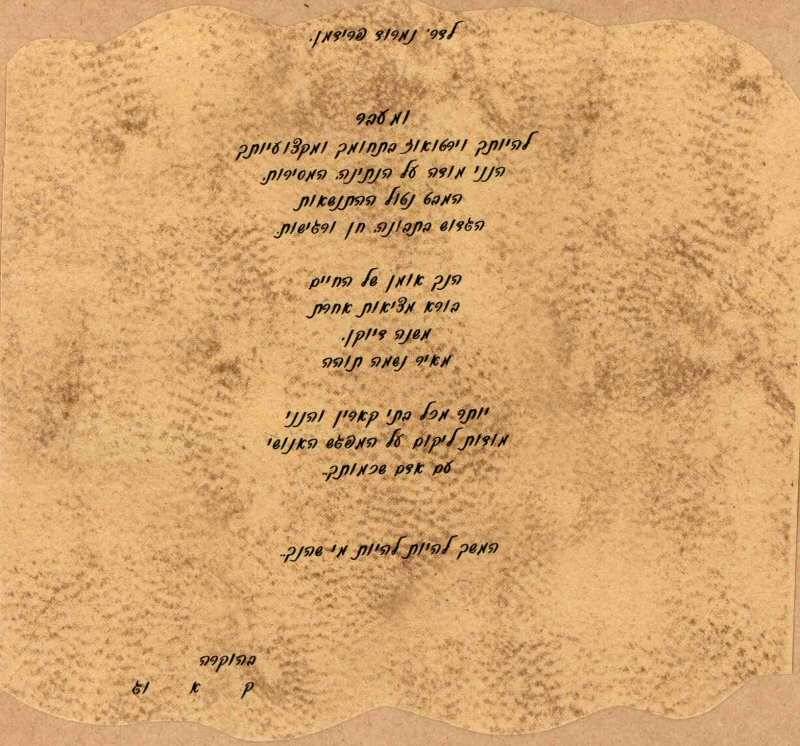 לדר. נמרוד פרידמן.
ומעבר
להיותך וירטואוז בתחומך ומקצועיותך
הנני מודה על הנתינה. המסירות.
המבט נטול ההתנשאות
הגדוש בתבונה. חן ורגישות.
הנך אומן של החיים
בורא מציאות אחרת
משנה דיוקן.
מאיר נשמה תוהה
יותר מכל בתי קארין והנני
מודות ליקום על המפגש האנושי
עם אדם שכמותך..
המשך להיות להיות מי שהנך..
בהוקרה
ק א וג